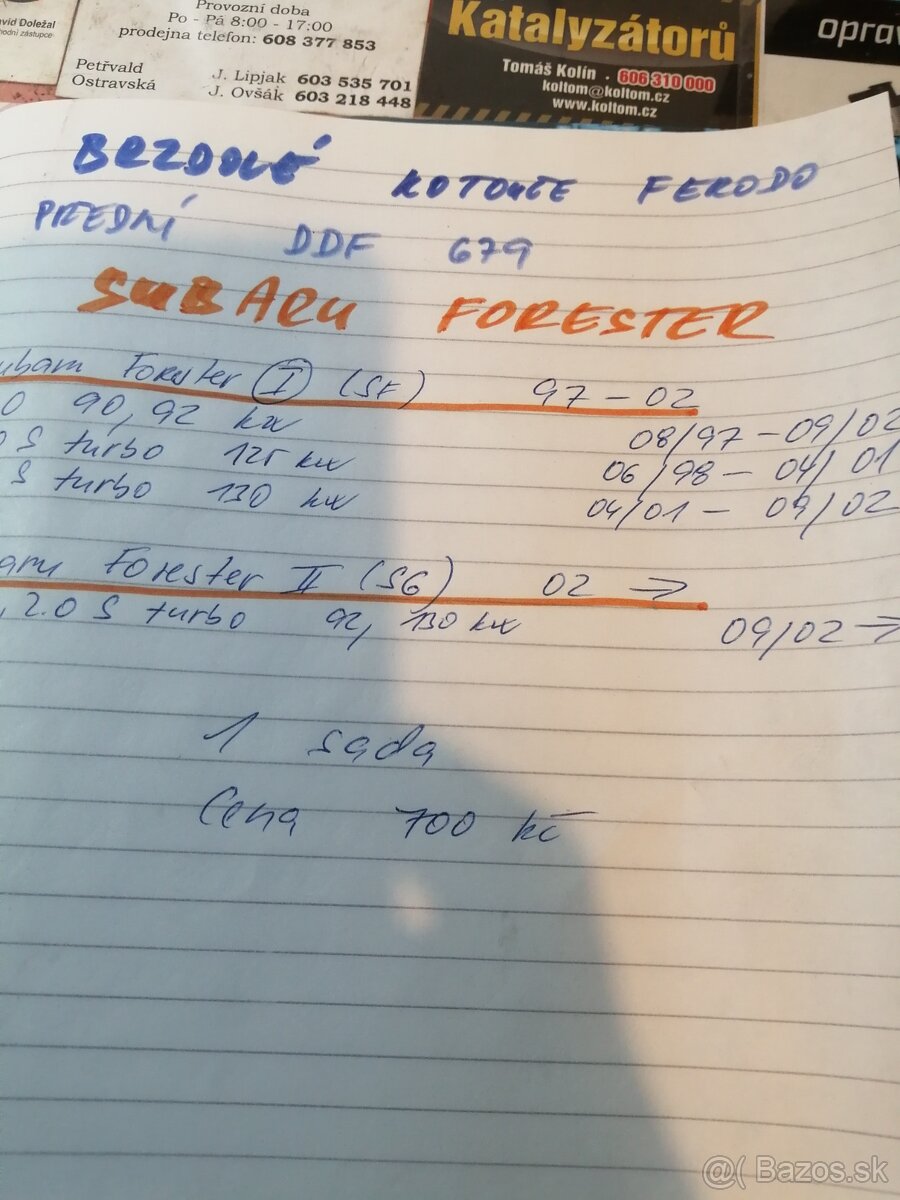 avid Doležal
hodní zástupce
Provozní doba
Po - Pá 8:00 - 17:00
prodejna telefon: 608 377 853
Petřvald
Ostravská
J. Lipjak 603 535 701
J. Ovšák 603 218 448
Katalyzátorů
Tomáš Kolín . 606 310 000
koltom@koltom.cz
www.koltom.cz
oprav
BRZDOVÉ KOTOUČE FERODO
PŘEDNÍ DDF 679
SUBARU FORESTER
ubaru Forester I (SF) 97 - 02
0 90, 92 kw 08/97 - 09/02
0 S turbo 125 kw 06/98 - 04/01
S turbo 130 kw 04/01 - 09/02
aru Forester II (SG) 02 →
, 2.0 S turbo 92, 130 kw 09/02 →
1 sada
Cena 700 kč
@( Bazos.sk